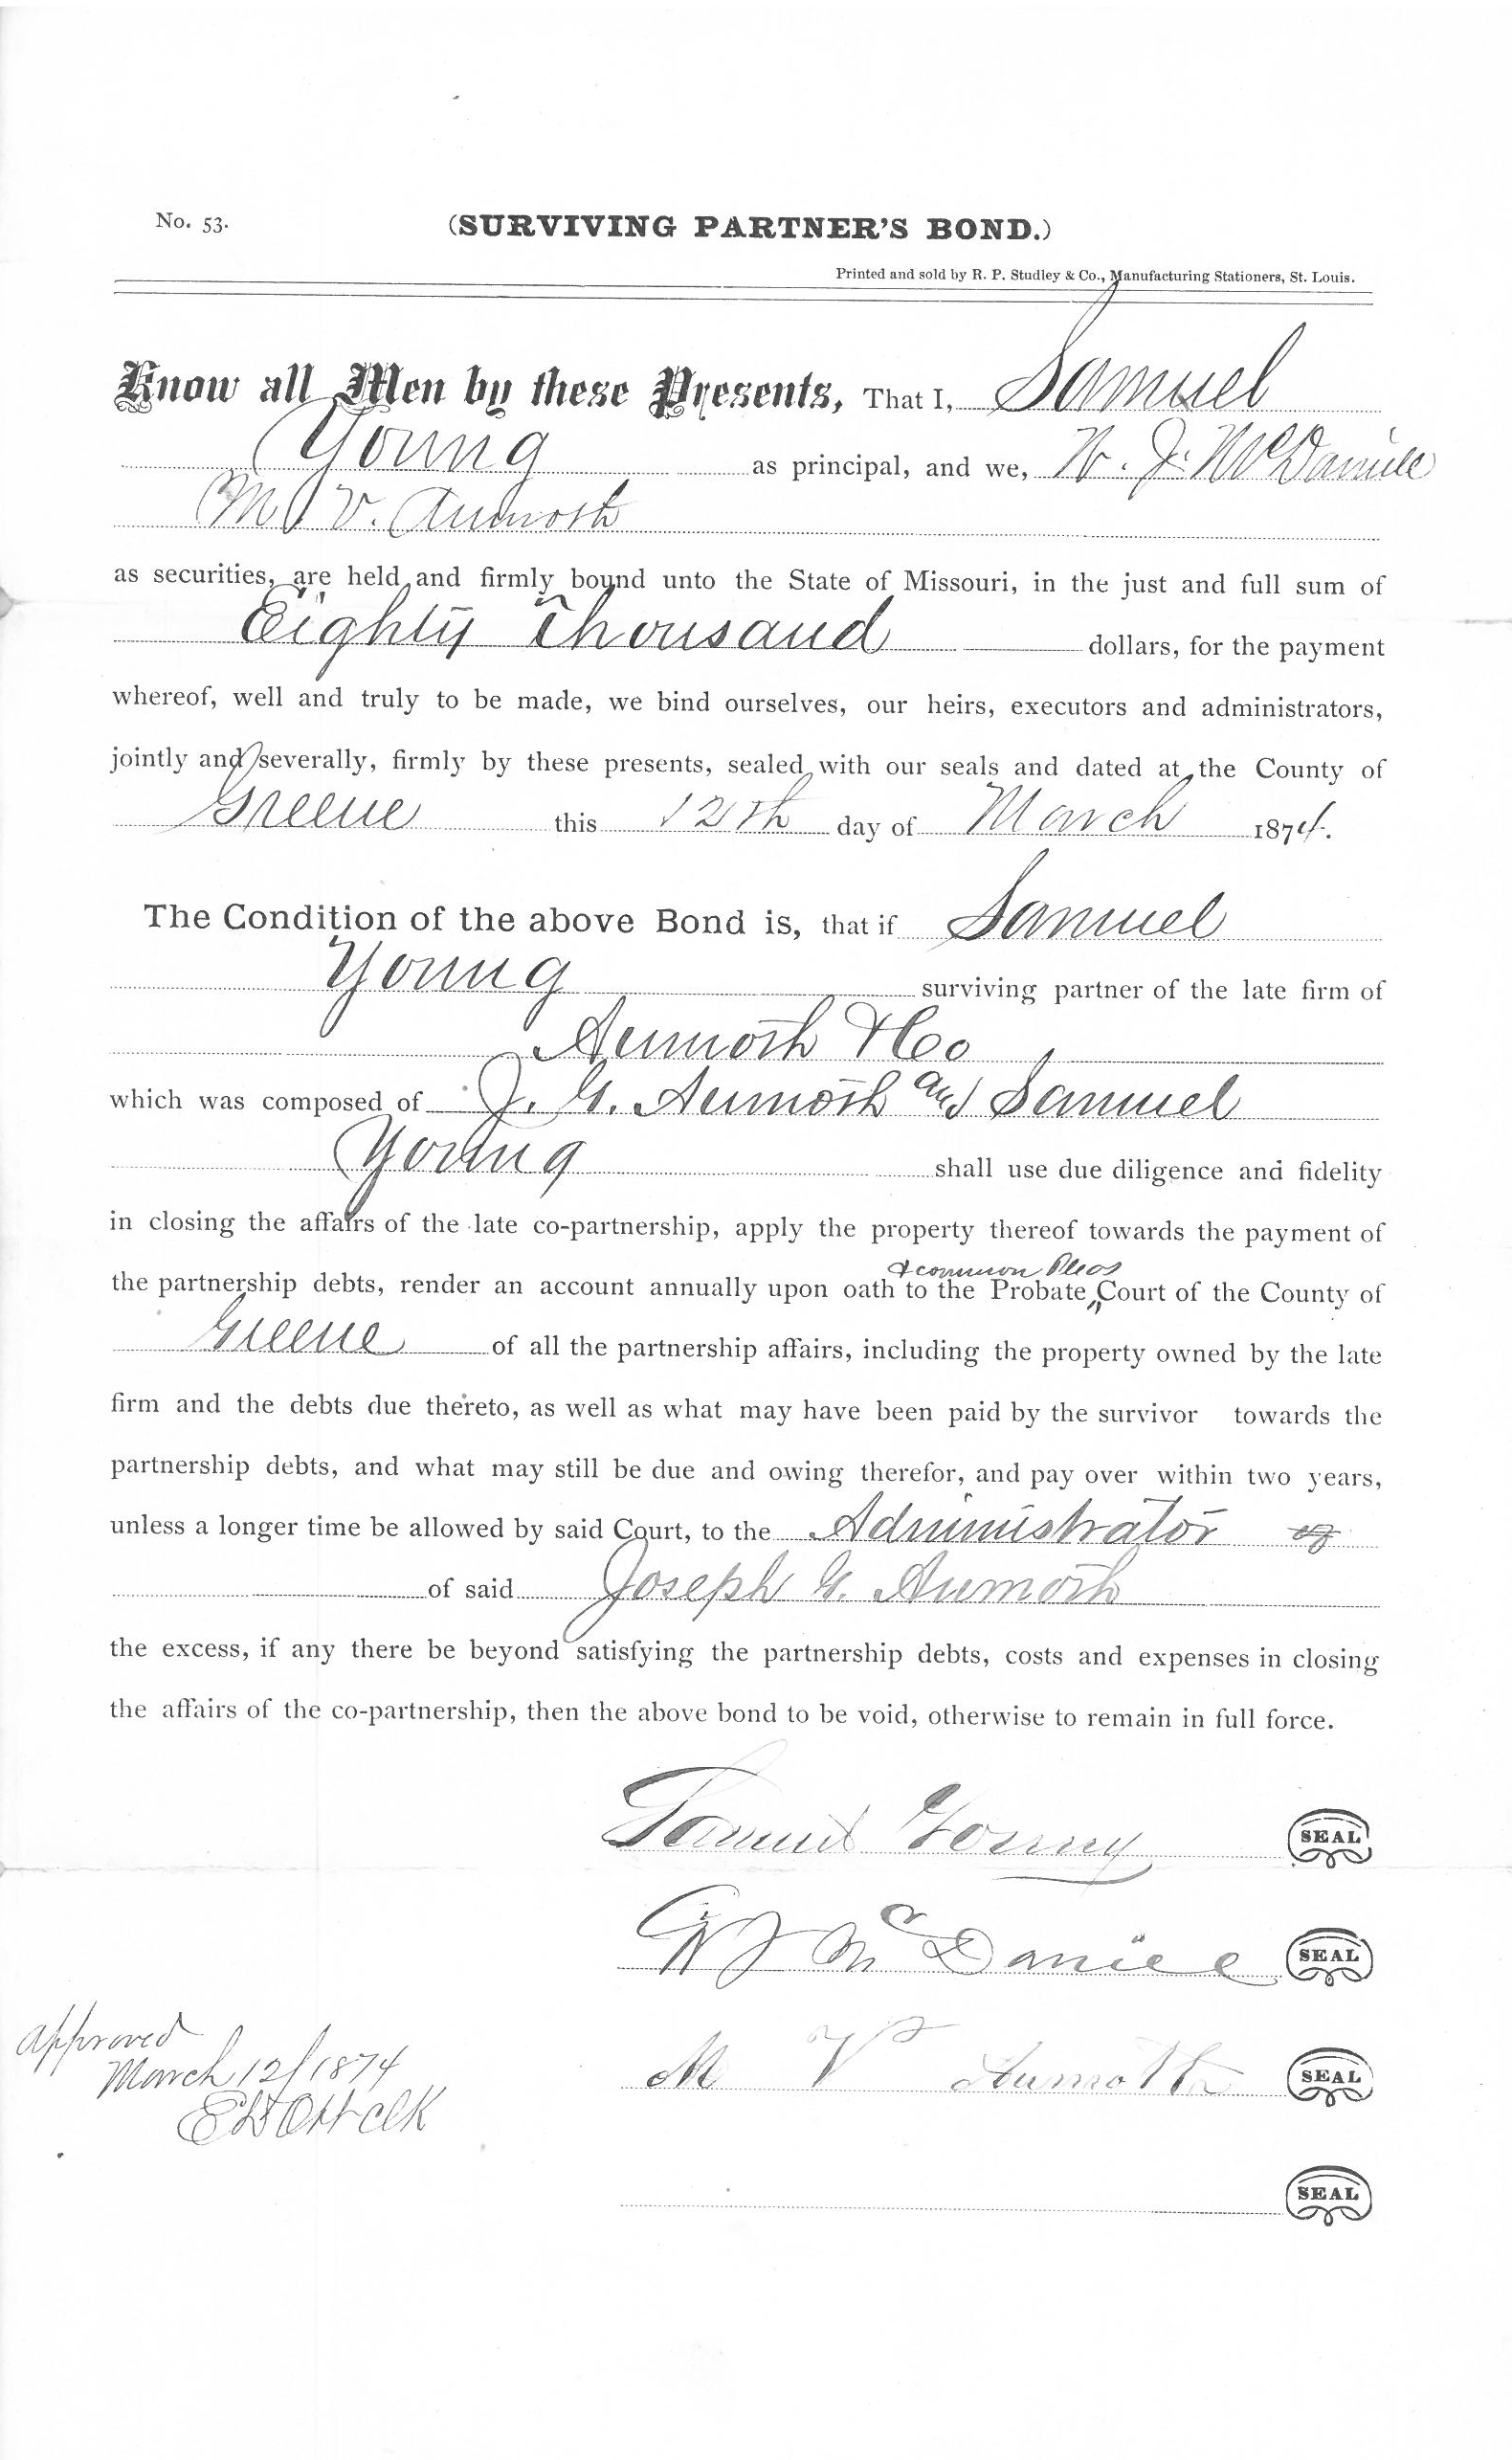 No. 53.
(SURVIVING PARTNER'S BOND.)
Printed and sold by R. P. Studley & Co., Manufacturing Stationers, St. Louis.
Know all Men by these Presents, That I, Samuel
Young as principal, and we, W. J. McDaniel
M V. Aumoth
as securities, are held and firmly bound unto the State of Missouri, in the just and full sum of
Eighty Thousand dollars, for the payment
whereof, well and truly to be made, we bind ourselves, our heirs, executors and administrators,
jointly and severally, firmly by these presents, sealed with our seals and dated at the County of
Greene this 12th day of March 1874.
The Condition of the above Bond is, that if Samuel
Young surviving partner of the late firm of
Aumoth & Co
which was composed of J. G. Aumoth and Samuel
Young shall use due diligence and fidelity
in closing the affairs of the late co-partnership, apply the property thereof towards the payment of
& common Pleas
the partnership debts, render an account annually upon oath to the Probate Court of the County of
Greene of all the partnership affairs, including the property owned by the late
firm and the debts due thereto, as well as what may have been paid by the survivor towards the
partnership debts, and what may still be due and owing therefor, and pay over within two years,
unless a longer time be allowed by said Court, to the Administrator of
of said Joseph G. Aumoth
the excess, if any there be beyond satisfying the partnership debts, costs and expenses in closing
the affairs of the co-partnership, then the above bond to be void, otherwise to remain in full force.
Samuel Young SEAL
W J McDaniel SEAL
M V Aumoth SEAL
approved
March 12/1874
E D Ott clk
SEAL